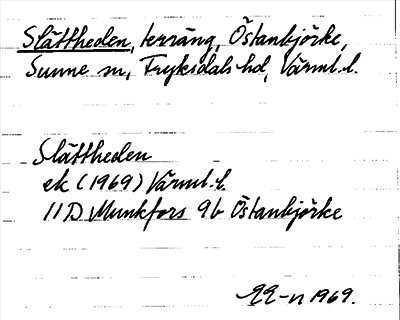 Slättheden, terräng, Östanbjörke,
Sunne sn, Fryksdals hd, Värml. l.
Slättheden
ek (1969) Värml. l.
11D Munkfors 9b Östanbjörke
1969.